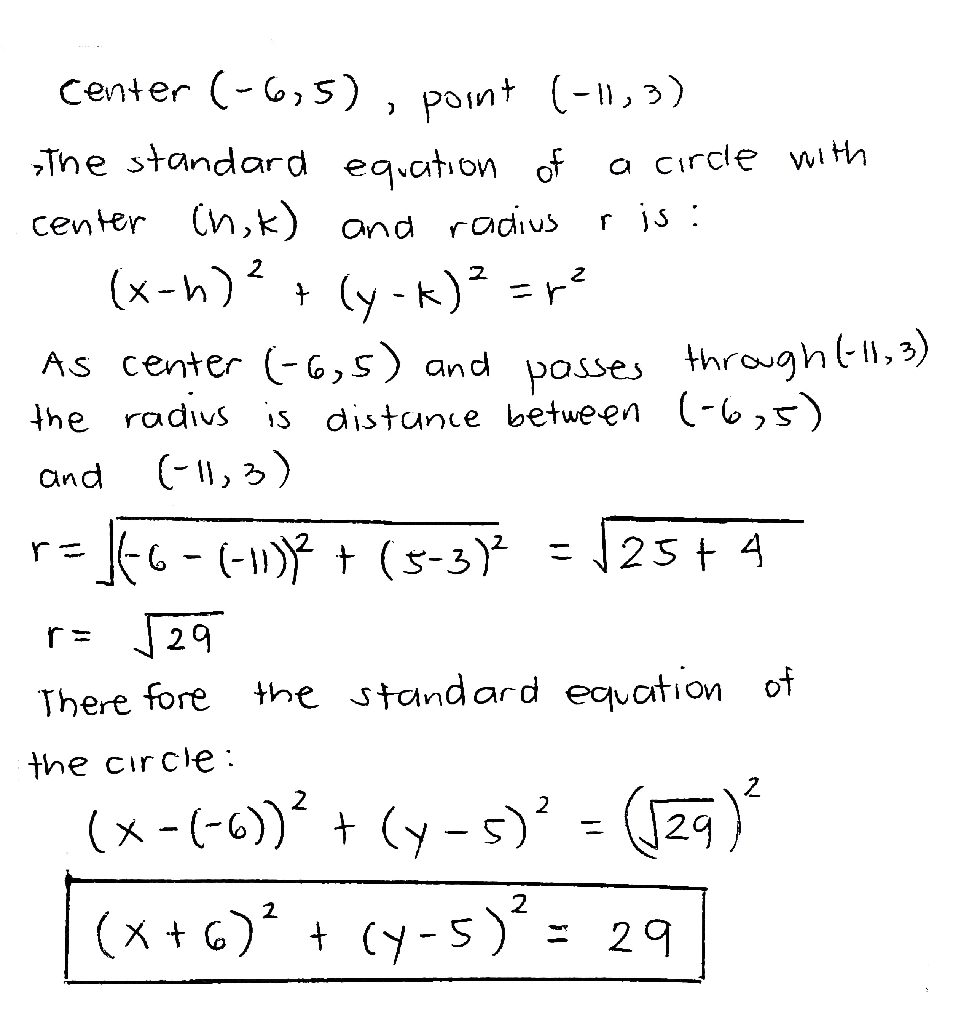 Center (-6,5) , point (-11,3)
The standard equation of a circle with
center (h,k) and radius r is :
(x-h)² + (y-k)² = r²
As center (-6,5) and passes through (-11,3)
the radius is distance between (-6,5)
and (-11,3)
r = √((-6-(-11))² + (5-3)²) = √(25+4)
r = √29
There fore the standard equation of
the circle :
(x-(-6))² + (y-5)² = (√29)²
(x+6)² + (y-5)² = 29